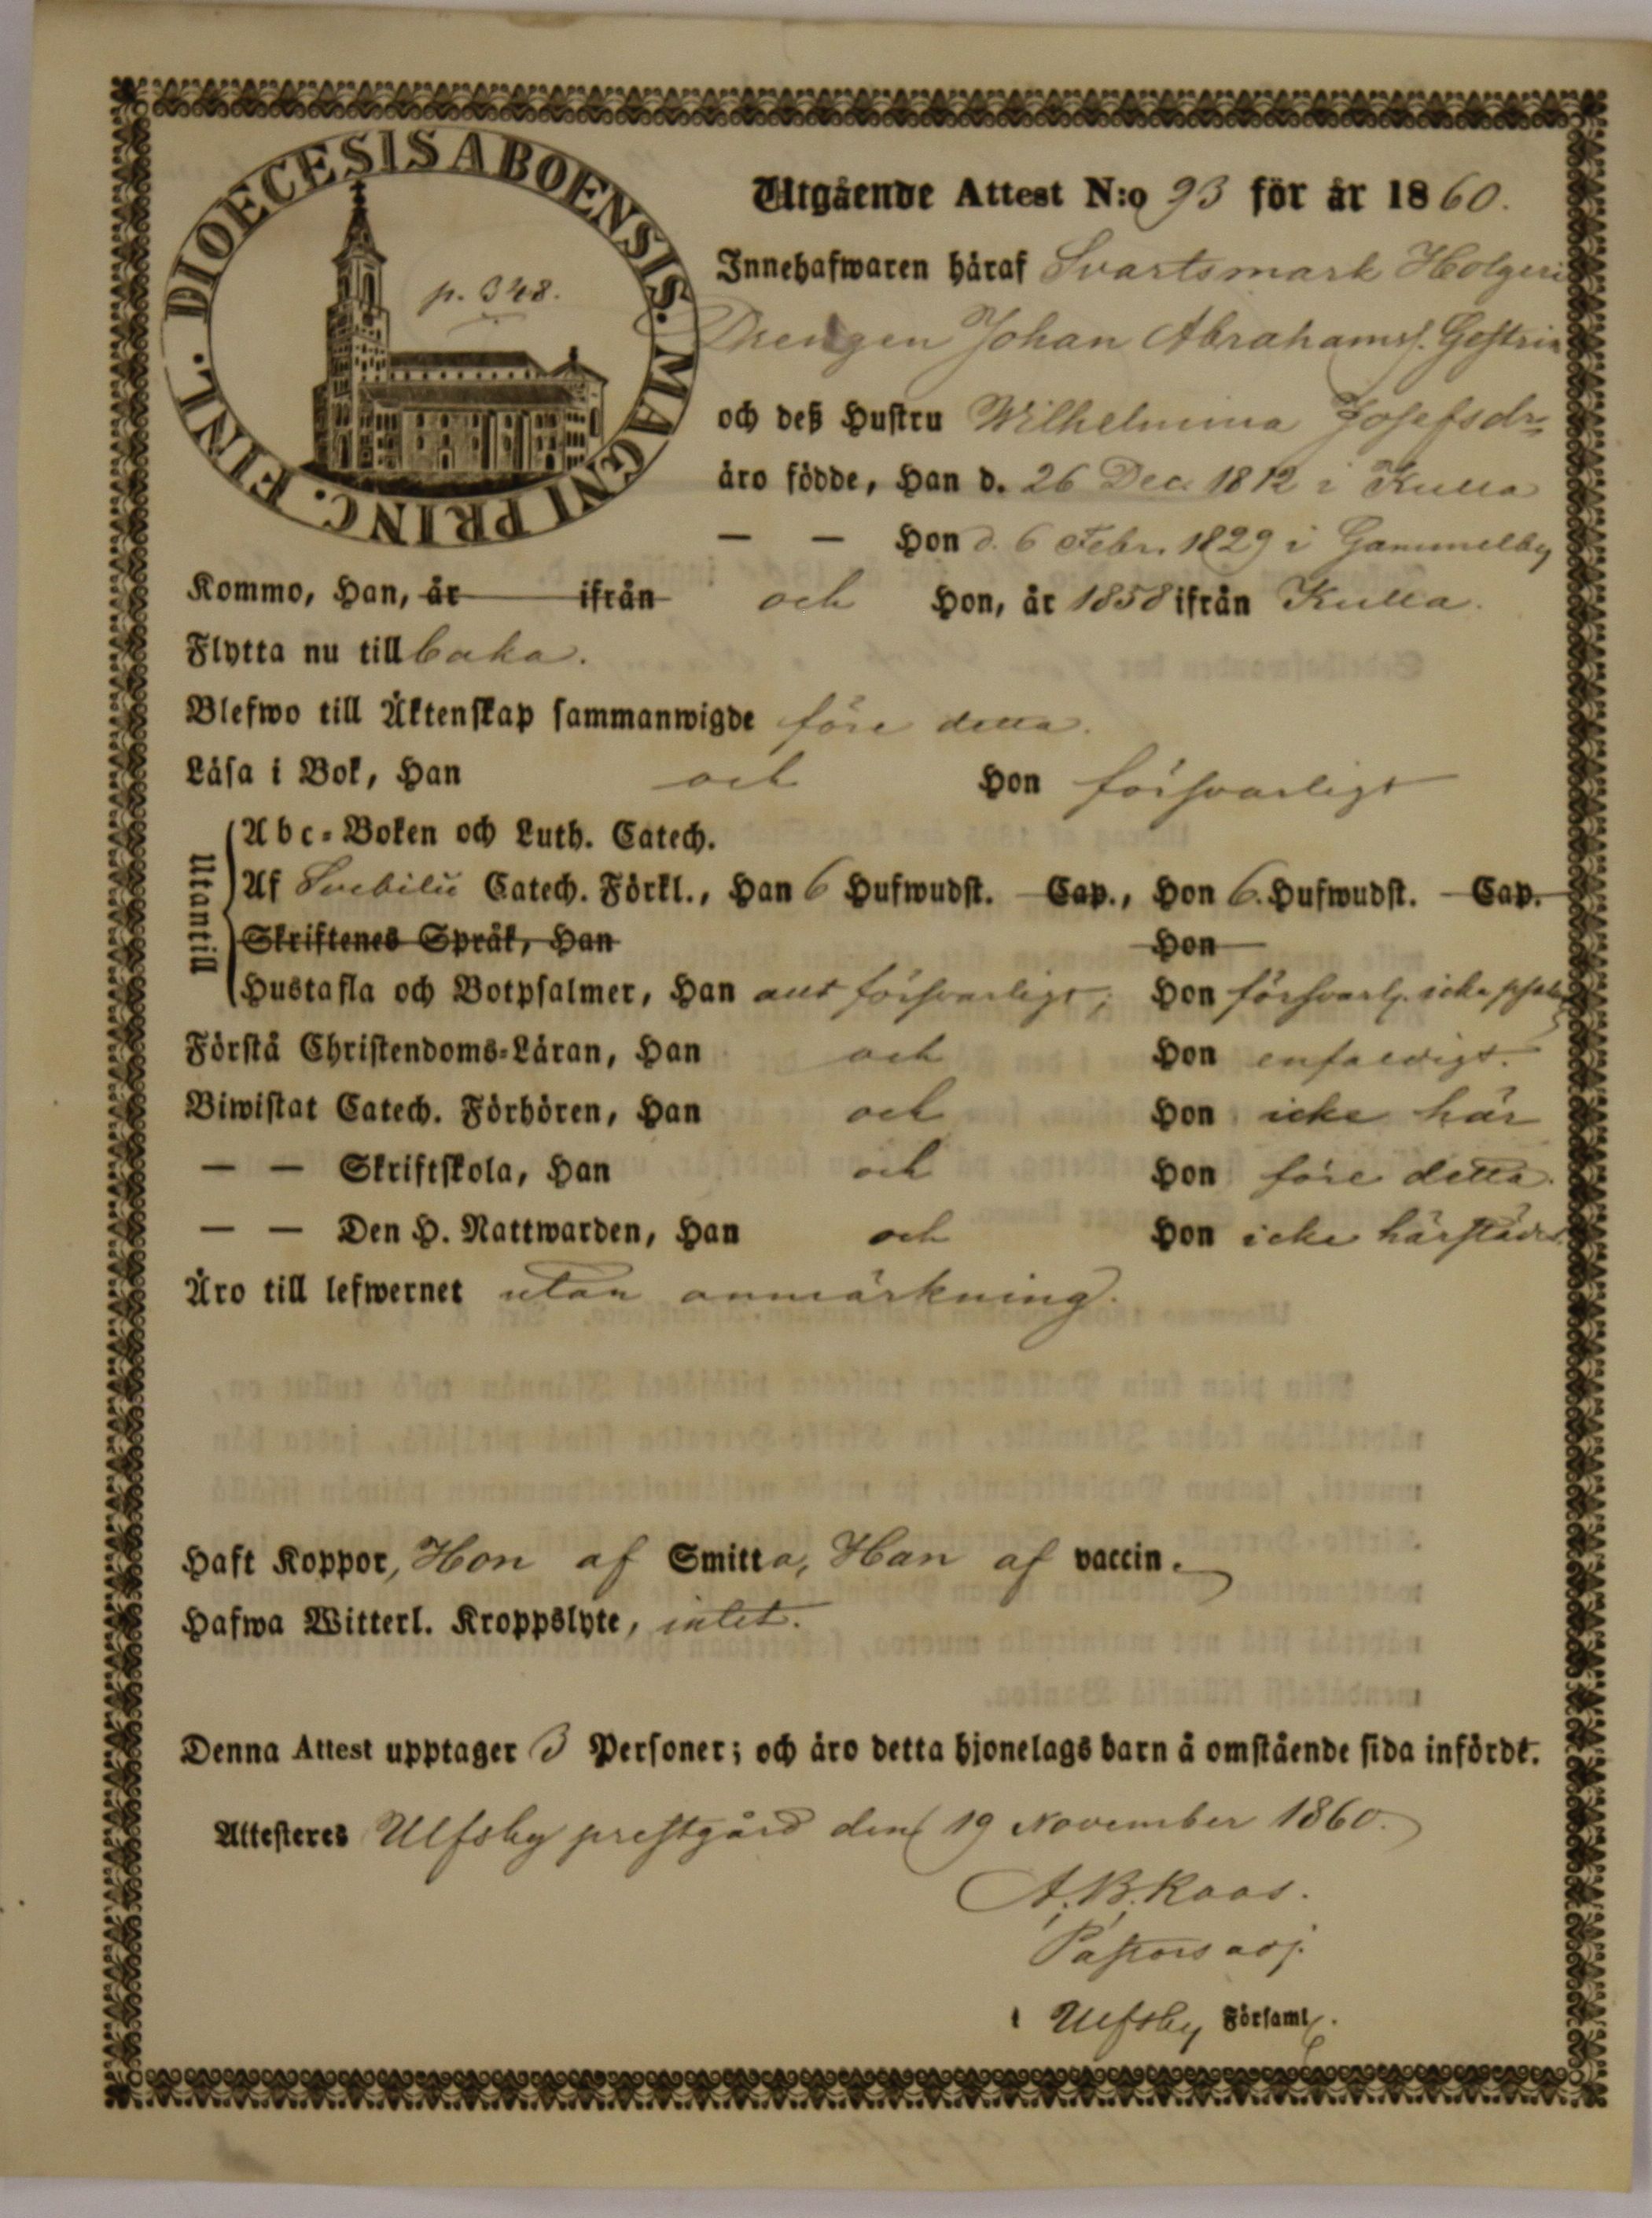 DIOECESIS ABOENSIS. MAGNI PRINC. FINL.
p. 348.
Utgående Attest N:o 93 för år 1860.
Innehafwaren häraf Svartsmark Holgeri
Drengen Johan Abrahamss. Gestrin
och deß Hustru Wilhelmina Josefsdr
äro födde, Han d. 26 Dec. 1812 i Kulla
— — Hon d. 6 Febr. 1829 i Gammelby
Kommo, Han, år ifrån och Hon, år 1858 ifrån Kulla.
Flytta nu till baka.
Blefwo till Äktenskap sammanwigde före detta.
Läsa i Bok, Han och Hon försvarligt
Utantill
Abc-Boken och Luth. Catech.
Af Svebilii Catech. Förkl., Han 6 Hufwudst. Cap., Hon 6. Hufwudst. Cap.
Skriftenes Språk, Han Hon
Hustafla och Botpsalmer, Han allt försvarligt; Hon försvarl. icke psalm
Förstå Christendoms-Läran, Han och Hon enfaldigt.
Biwistat Catech. Förhören, Han och Hon icke här
— — Skriftskola, Han och Hon före detta.
— — Den H. Nattwarden, Han och Hon icke härstädes
Äro till lefwernet utan anmärkning.
Haft Koppor, Hon af Smitta, Han af vaccin.
Hafwa Witterl. Kroppslyte, intet.
Denna Attest upptager 3 Personer; och äro detta hjonelags barn å omstående sida införde.
Attesteres Ulfsby prestgård den 19 November 1860.
A. B. Roos.
Pastors adj.
i Ulfsby Församl.